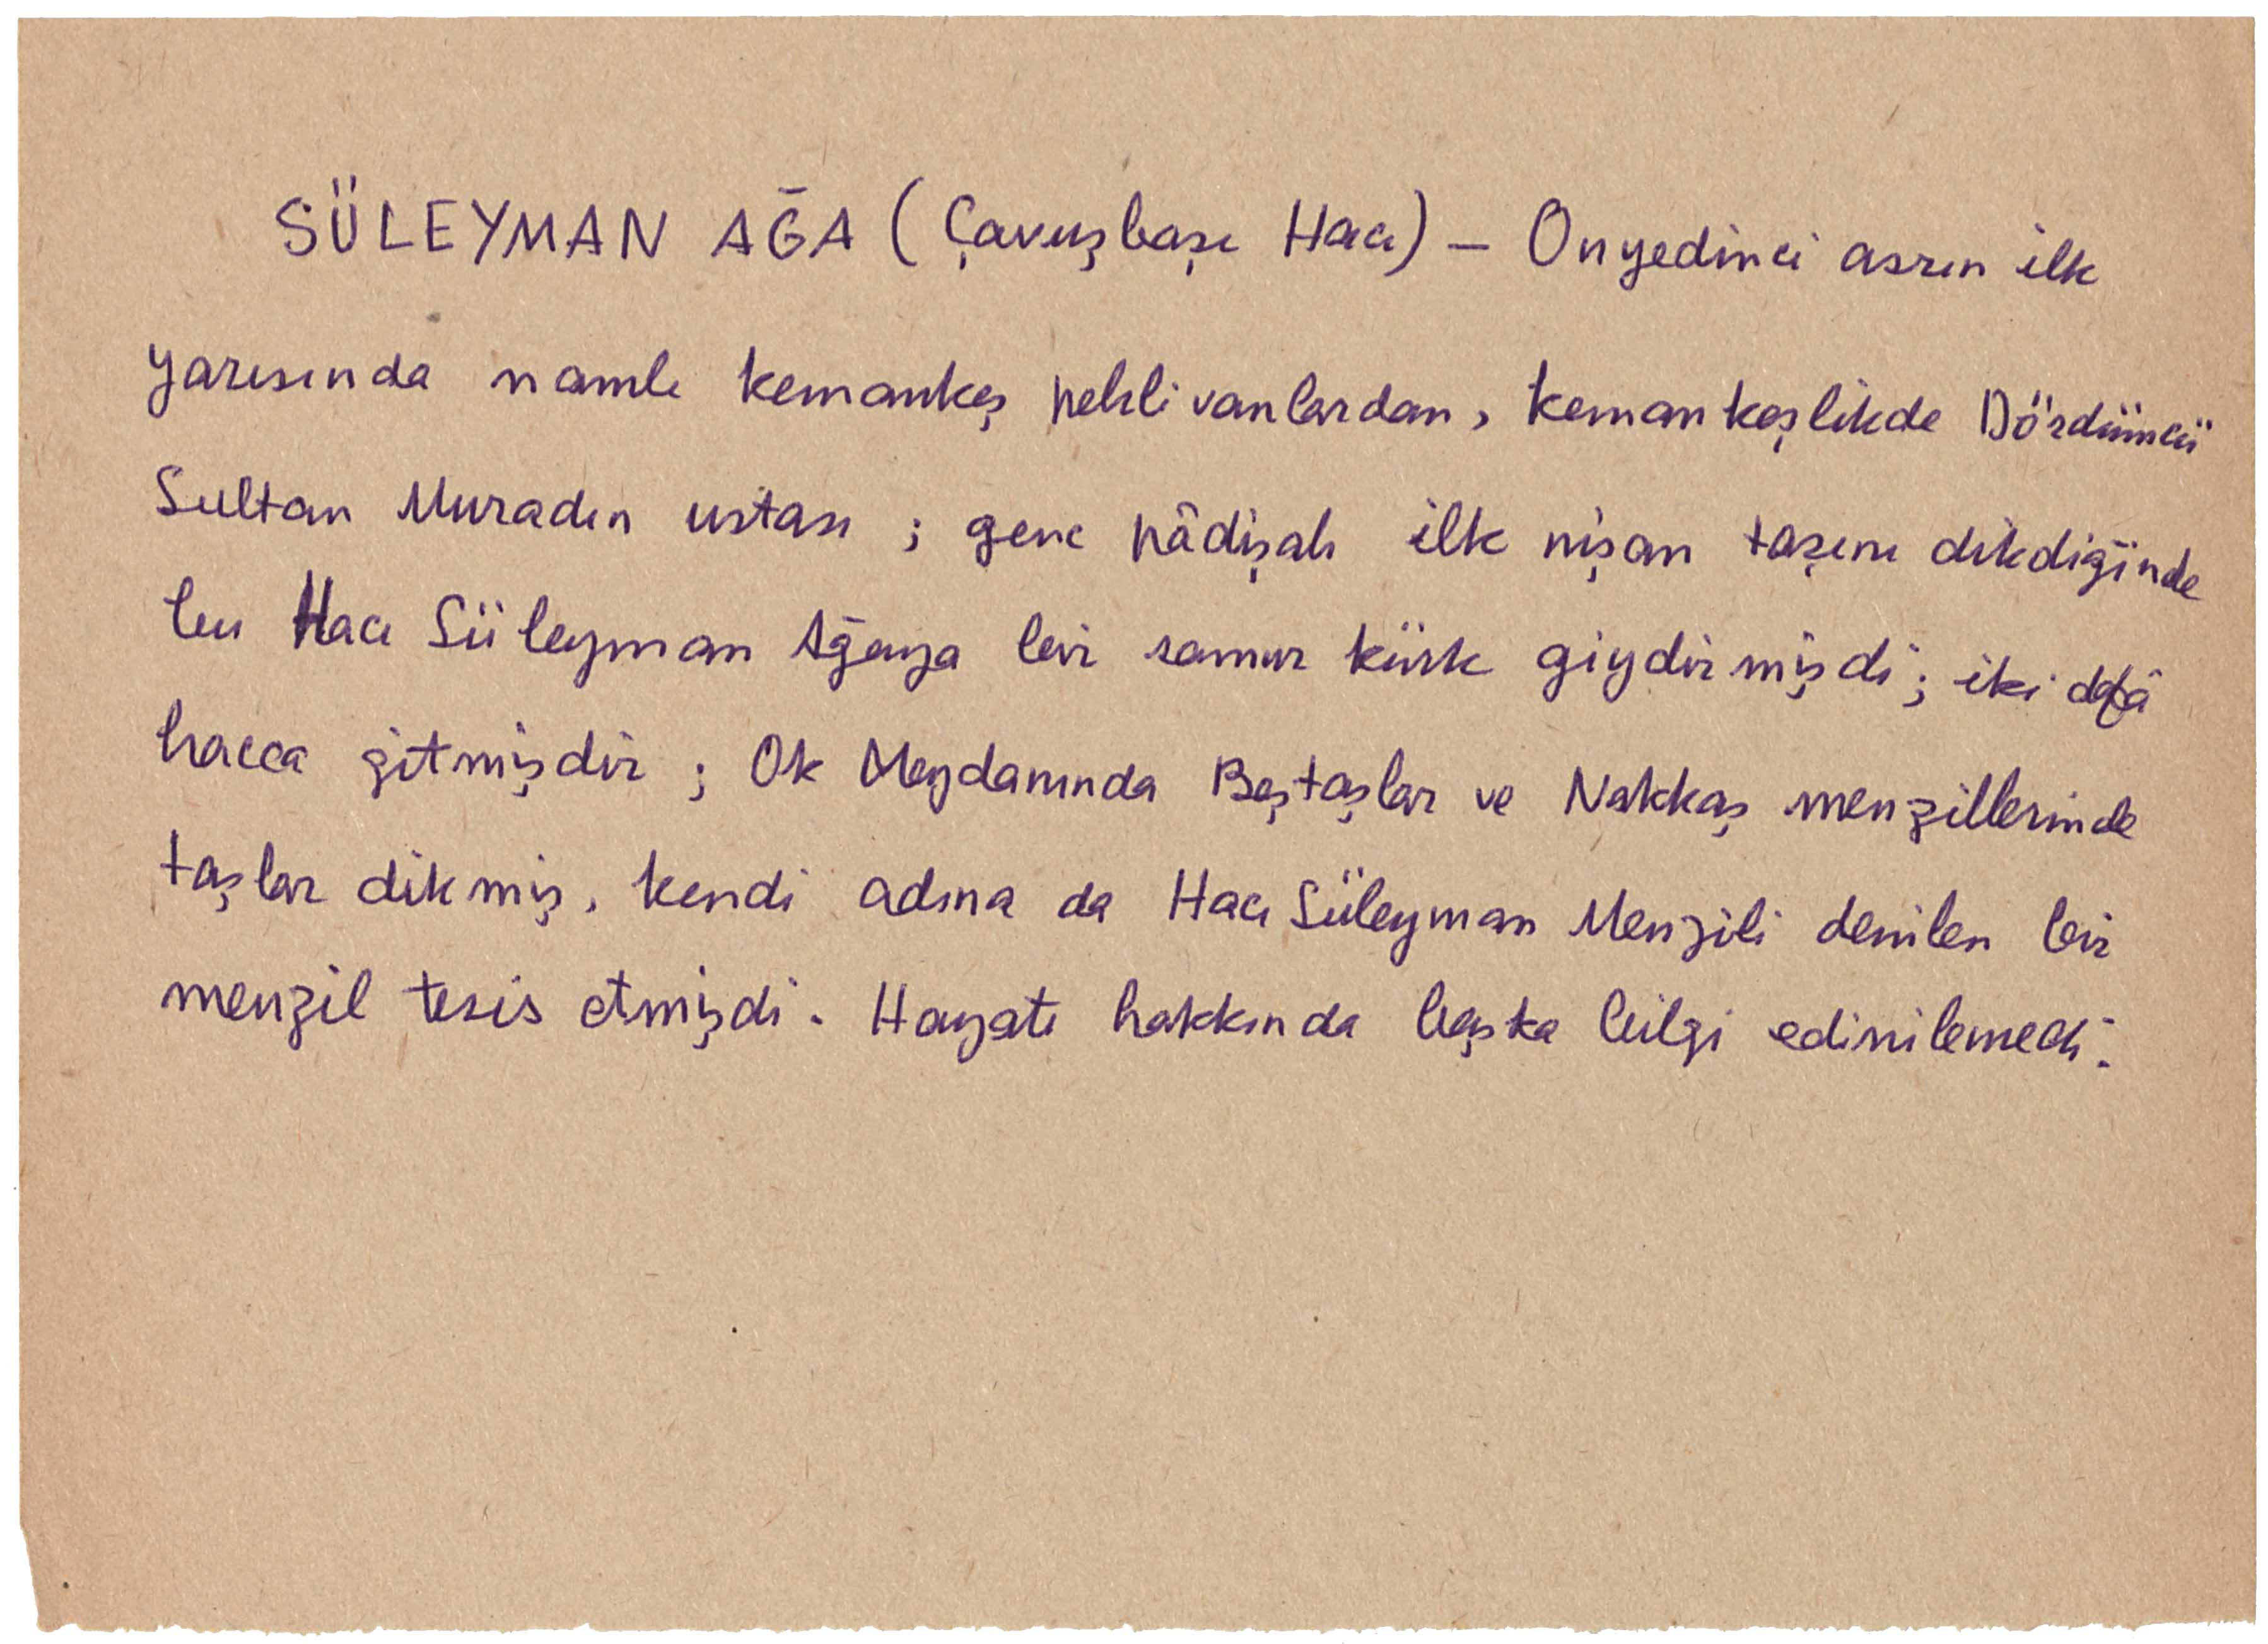 SÜLEYMAN AĞA (Çavuşbaşı Hacı) — Onyedinci asrın ilk
yarısında namlı kemankeş pehlivanlardan, kemankeşlikde Dördüncü
Sultan Muradın ustası ; genc pâdişah ilk nişan taşını dikdiğinde
bu Hacı Süleyman Ağaya bir samur kürk giydirmişdi ; iki defâ
hacca gitmişdir ; Ok Meydanında Beştaşlar ve Nakkaş menzillerinde
taşlar dikmiş, kendi adına da Hacı Süleyman Menzili denilen bir
menzil tesis etmişdi. Hayatı hakkında başka bilgi edinilemedi.